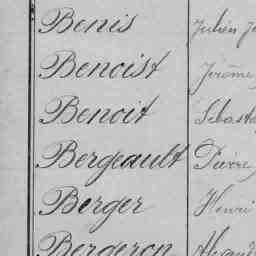 Benis Julien
Benoist Jérôme
Benoit
Bergeault Pierre
Berger Henri
Bergeron